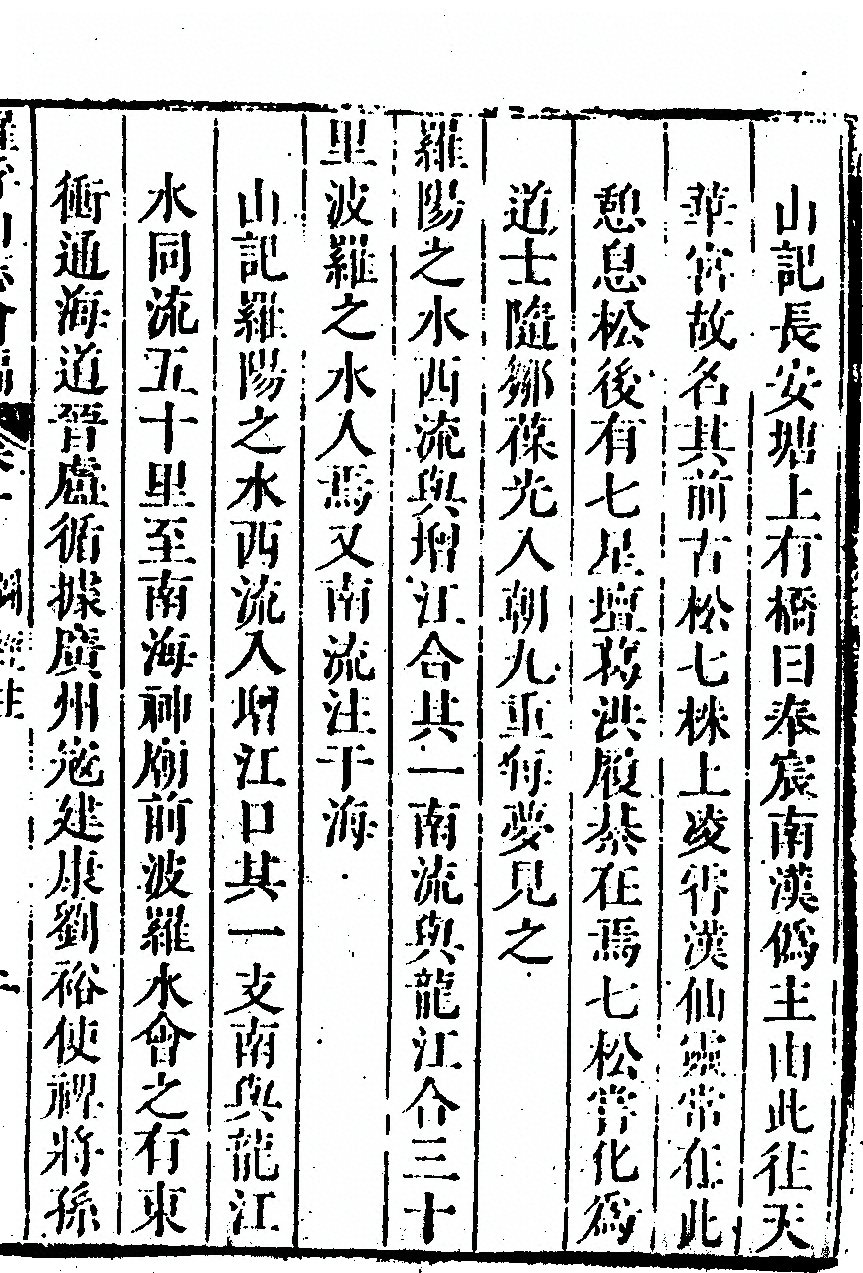 山記長安塘上有橋曰奉宸南漢僞主由此往天
華宮故名其前古松七株上凌霄漢仙靈常在此
憩息松後有七星壇葛洪履綦在焉七松嘗化爲
道士隨鄒葆光入朝九重每夢見之
羅陽之水西流與增江合其一南流與龍江合三十
里波羅之水人焉又南流注于海
山記羅陽之水西流入增江口其一支南與龍江
水同流五十里至南海神廟前波羅水會之有東
衝通海道晉盧循據廣州宼建康劉裕使裨將孫